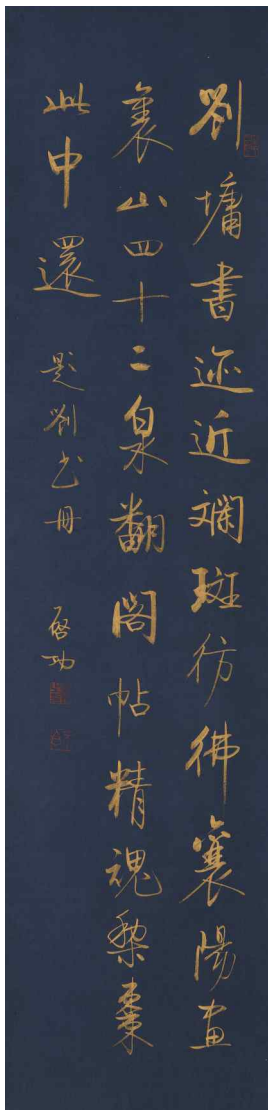 劉墉書迹近斕斑彷彿襄陽畫
裏山四十二泉翻閣帖精魂棃棗
此中還 題劉书冊 啓功